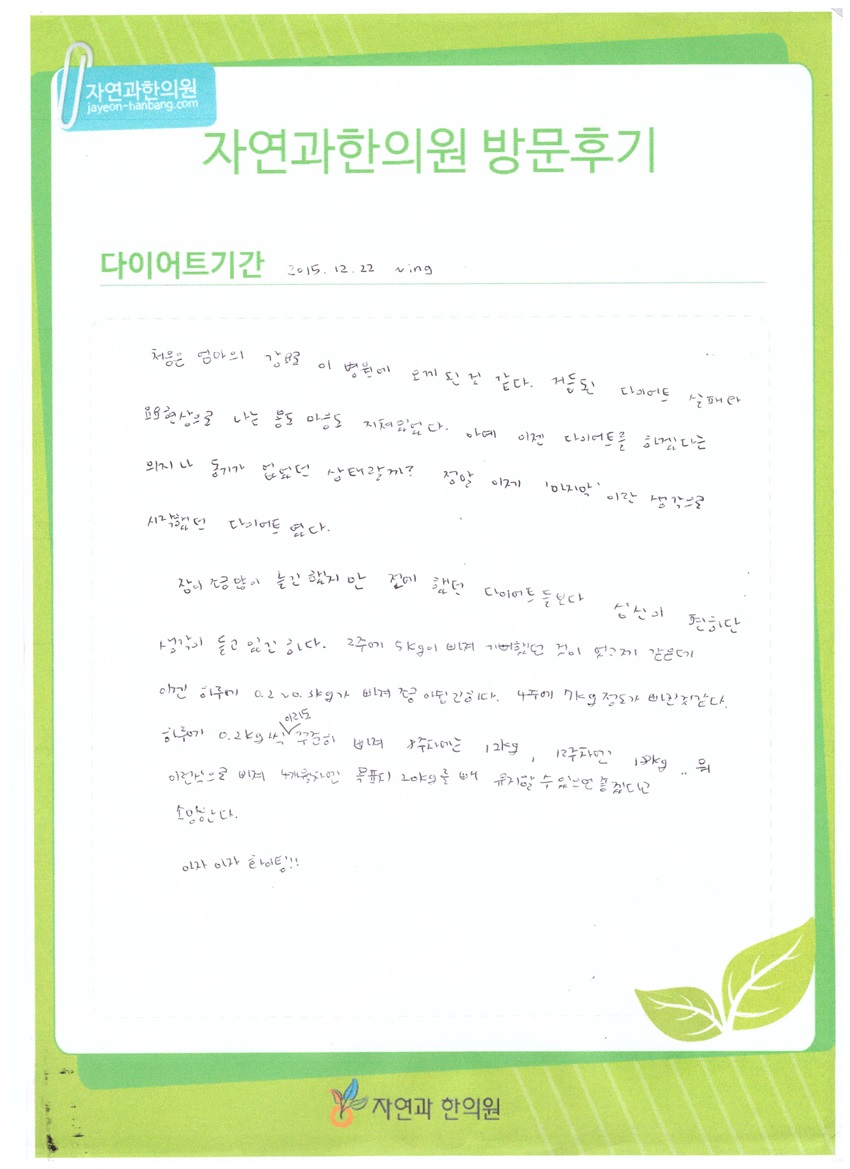 자연과한의원
jayeon-hanbang.com
자연과한의원 방문후기
다이어트기간 2015. 12. 22 ~ing
처음은 엄마의 강요로 이 병원에 오게 된 것 같다. 거듭된 다이어트 실패와
요요현상으로 나는 몸도 마음도 지쳐있었다. 아예 이젠 다이어트를 하겠다는
의지나 동기가 없었던 상태랄까? 정말 이제 '마지막' 이란 생각으로
시작했던 다이어트였다.
잠이 조금 많이 늘긴 했지만 전에 했던 다이어트들보다 심신이 편하단
생각이 들고 있긴 하다. 2주에 5kg이 빠져 기뻐했던 것이 엊그제 같은데
이젠 하루에 0.2~0.3kg가 빠져 조금 아쉽긴하다. 4주에 7kg 정도가 빠진것같다.
하루에 0.2kg씩 이라도 꾸준히 빠져 8주차에는 12kg, 12주차엔 18kg .. 뭐
이런식으로 빠져 4개월차엔 목표치 20kg를 빼 유지할 수 있으면 좋겠다고
소망한다.
아자 아자 화이팅!!
자연과 한의원